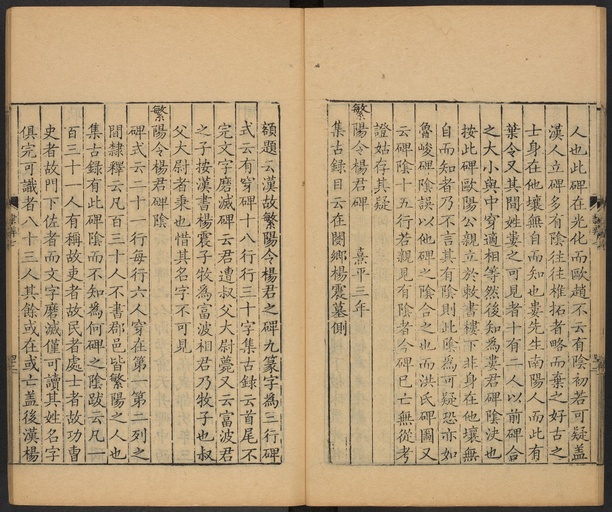 人也此碑在光化而歐趙不云有陰初若可疑蓋
漢人立碑多有陰往往椎拓者略而棄之好古之
士身在他壤無自而知也婁先生南陽人而此有
葉令又其間姓婁之可見者十有二人以前碑合
之大小與中穿適相等然後知為婁君碑陰決也
按此碑歐陽公親立於敕書樓下非身在他壤無
自而知者乃不言其有陰則此陰為可疑恐亦如
魯峻碑陰誤以他碑之陰合之也而洪氏碑圖又
云碑陰十五行若親見有陰者今碑已亡無從考
證姑存其疑
繁陽令楊君碑 熹平三年
集古錄目云在閿鄉楊震墓側
額題云漢故繁陽令楊君之碑九篆字為三行碑
式云有穿碑十八行行三十字集古錄云首尾不
完文字磨滅碑云君遭叔父大尉薨又云富波君
之子按漢書楊震子牧為富波相君乃牧子也叔
父大尉者秉也惜其名字不可見
繁陽令楊君碑陰
碑式云二十一行每行六人穿在第一第二列之
間隸釋云凡百三十人不書郡邑皆繁陽之人也
集古錄有此碑陰而不知為何碑之陰跋云凡一
百三十一人有稱故吏者故民者處士者故功曹
史者故門下佐者而文字磨滅僅可讀其姓名字
俱完可識者八十三人其餘或在或亡蓋後漢楊